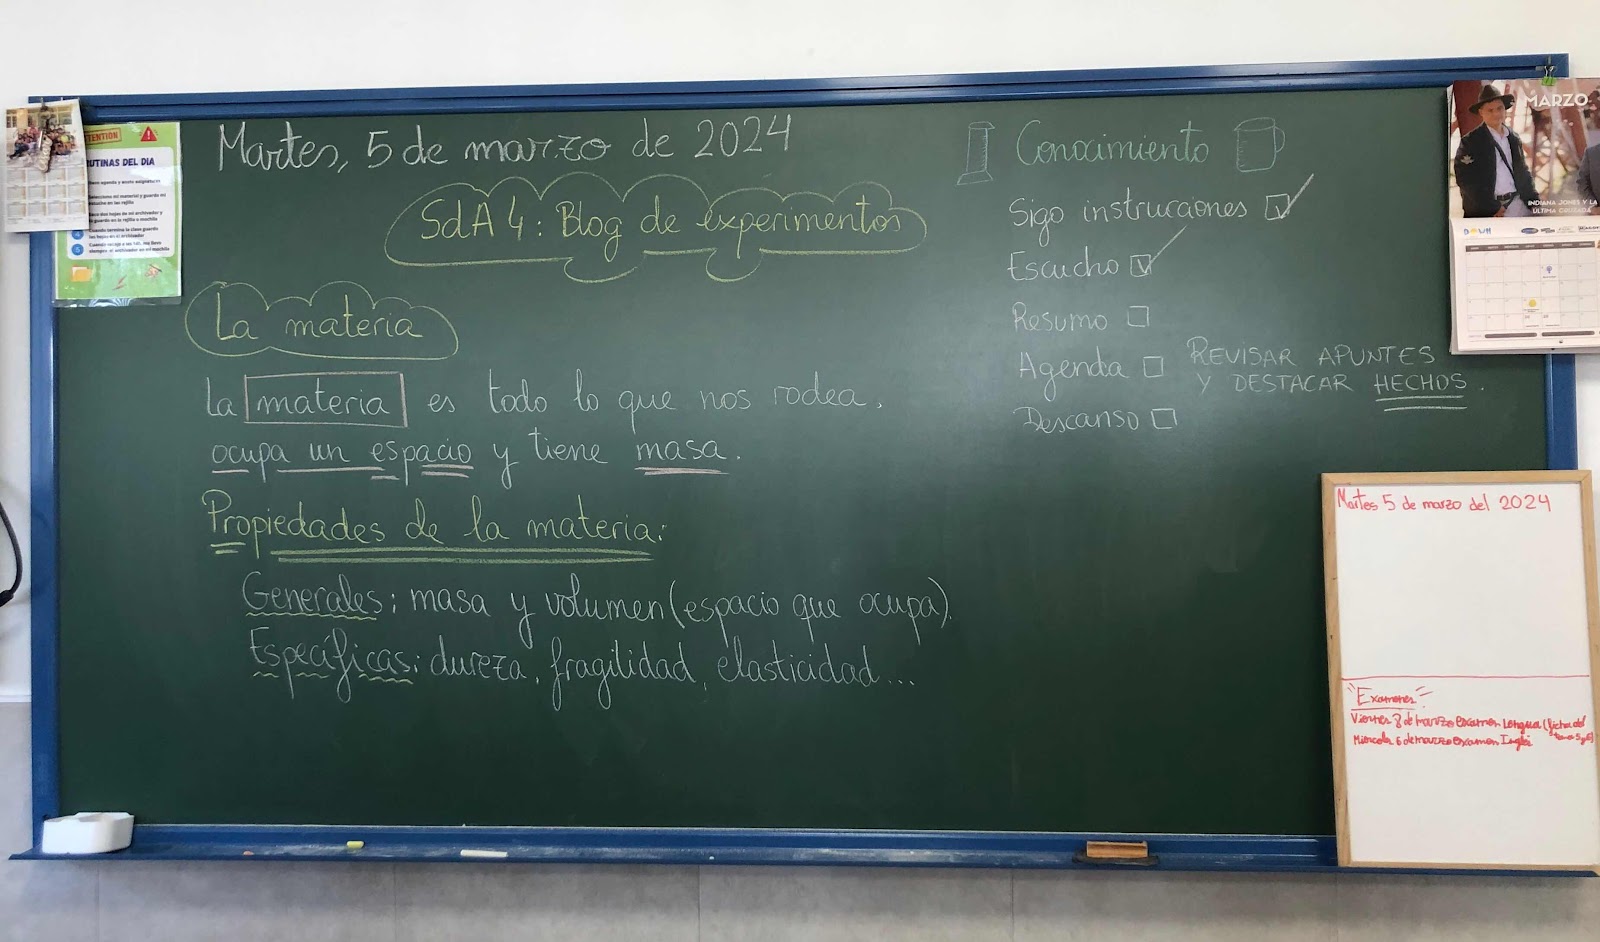 Martes, 5 de marzo de 2024
SdA 4: Blog de experimentos
La materia
La materia es todo lo que nos rodea,
ocupa un espacio y tiene masa.
Propiedades de la materia:
Generales: masa y volumen (espacio que ocupa).
Específicas: dureza, fragilidad, elasticidad...
Conocimiento
Sigo instrucciones
Escucho
Resumo
Agenda REVISAR APUNTES
Y DESTACAR HECHOS.
Descanso
RUTINAS DEL DIA
MARZO
INDIANA JONES Y LA
ÚLTIMA CRUZADA
Martes 5 de marzo del 2024
"Examenes"
Viernes 8 de marzo examen Lengua (ficha del
tema 5 y 6)
Miercole 6 de marzo examen Ingles